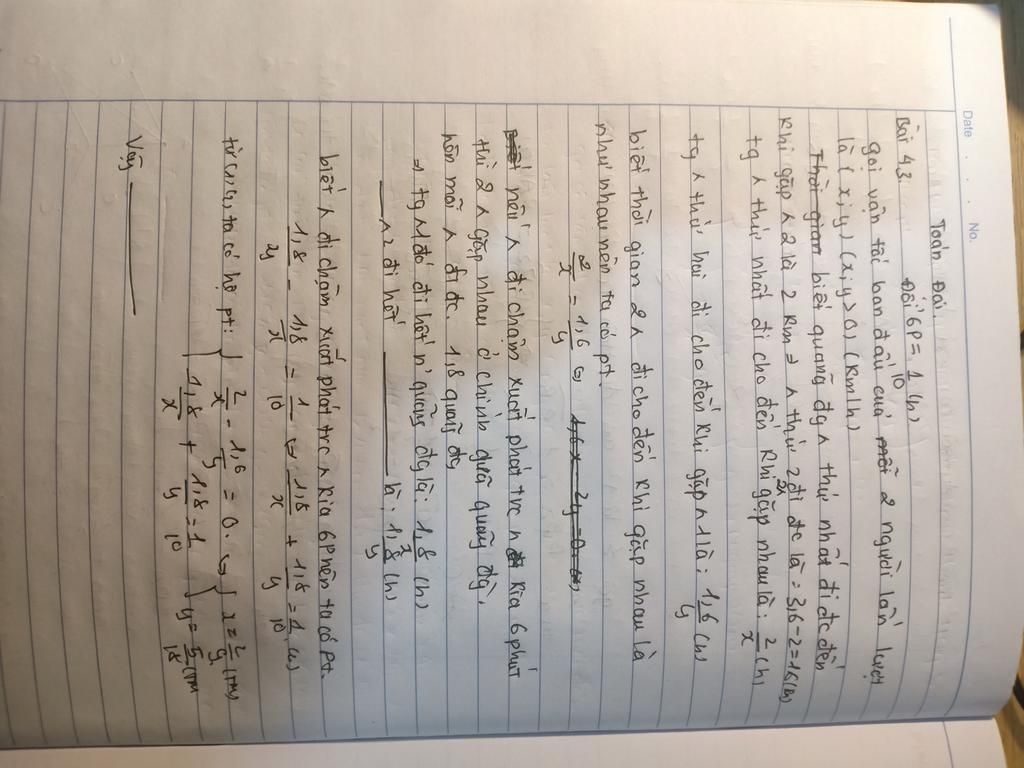 Date No.
Toán Đại
Bài 43 Đổi 6p = 1/10 (h)
gọi vận tốc ban đầu của mỗi 2 người lần lượt
là (x; y) (x; y > 0) (km/h)
Thời gian biết quãng đg n thứ nhất đi đc đến
khi gặp n 2 là 2 km ⇒ n thứ 2 đi đc là: 3,6 - 2 = 1,6 (km)
tg n thứ nhất đi cho đến khi gặp nhau là: 2/x (h)
tg n thứ hai đi cho đến khi gặp n 1 là: 1,6/y (h)
biết thời gian 2 n đi cho đến khi gặp nhau là
như nhau nên ta có pt.
2/x = 1,6/y ⇔ 1,6x - 2y = 0
nếu n đi chậm xuất phát trc n kia 6 phút
thì 2 n gặp nhau ở chính giữa quãng đg.
nên mỗi n đi đc 1,8 quãng đg
⇒ tg n1 đó đi hết n' quãng đg là: 1,8/x (h)
n2 đi hết là: 1,8/y (h)
biết n đi chậm xuất phát trc n kia 6 phần ta có pt.
1,8/y - 1,8/x = 1/10 ⇔ - 1,8/x + 1,8/y = 1/10 (2)
từ (1), (2) ta có hệ pt: { 2/x - 1,6/y = 0 ⇔ { x = 2/9 (tm)
1,8/x + 1,8/y = 1/10 y = 5/18 (tm
Vậy